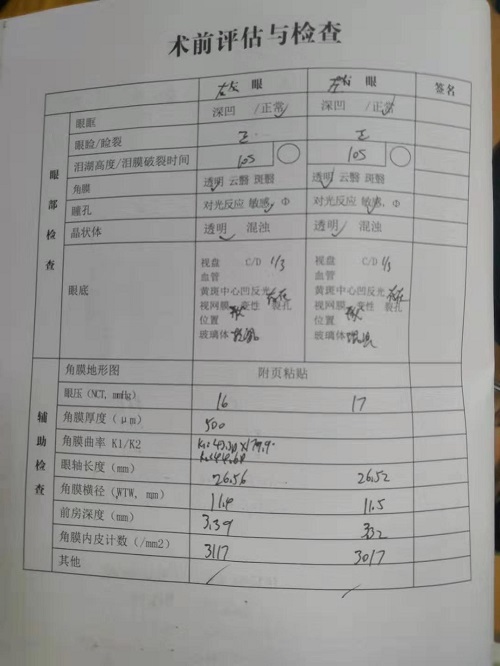 术前评估与检查
眼 眼 签名
眼部检查
眼眶 深凹 /正常 深凹 /正常
眼睑/睑裂 正 正
泪湖高度/泪膜破裂时间 10s 10s
角膜 透明 云翳 斑翳 透明 云翳 斑翳
瞳孔 对光反应 敏感、Φ 对光反应 敏感、Φ
晶状体 透明 混浊 透明 混浊
眼底
视盘 C/D 1/3 视盘 C/D 1/3
血管 血管
黄斑中心凹反光 黄斑中心凹反光
视网膜 变性 裂孔 视网膜 变性 裂孔
位置 位置
玻璃体 玻璃体
辅助检查
角膜地形图 附页粘贴
眼压(NCT, mmHg) 16 17
角膜厚度(μm) 500
角膜曲率 K1/K2
眼轴长度(mm) 26.56 26.52
角膜横径(WTW, mm) 11.4 11.5
前房深度(mm) 3.39 3.32
角膜内皮计数(/mm2) 3117 3017
其他 / /